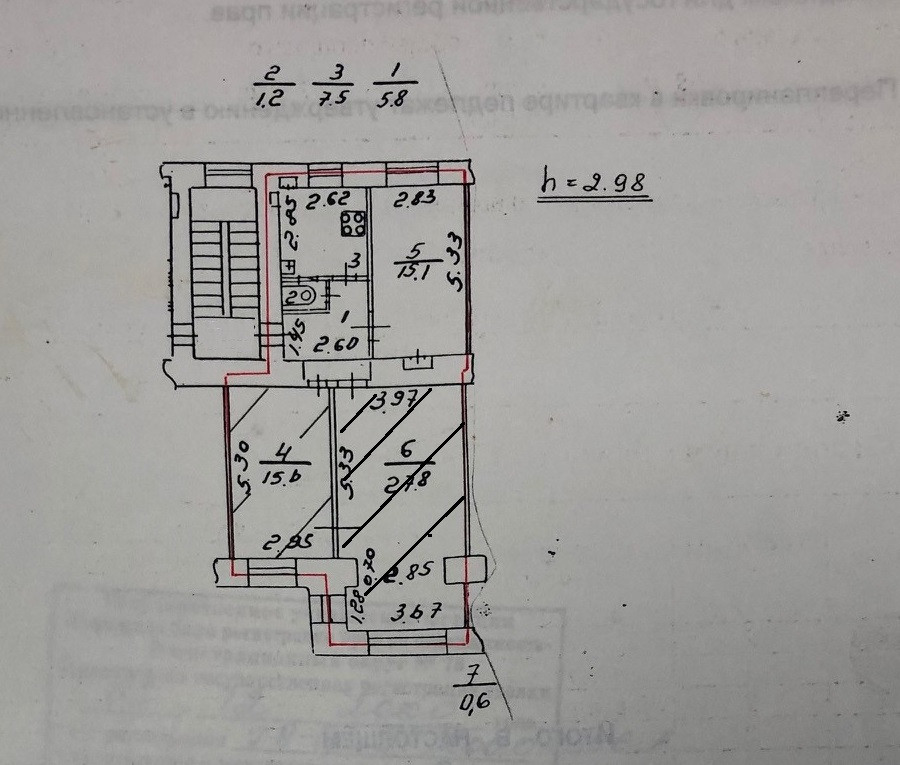 2 3 1
1.2 7.5 5.8
h = 2.98
2.62 2.83
2.85
5.33
5
15.1
3
2
1
1.45
2.60
3.97
5.30
4
15.6
5.33
6
27.8
2.95
0.70
2.85
1.28
3.67
7
0,6
Перепланировки в квартире подлежат утверждению в установленном
государственной регистрации прав
Итого в настоящем